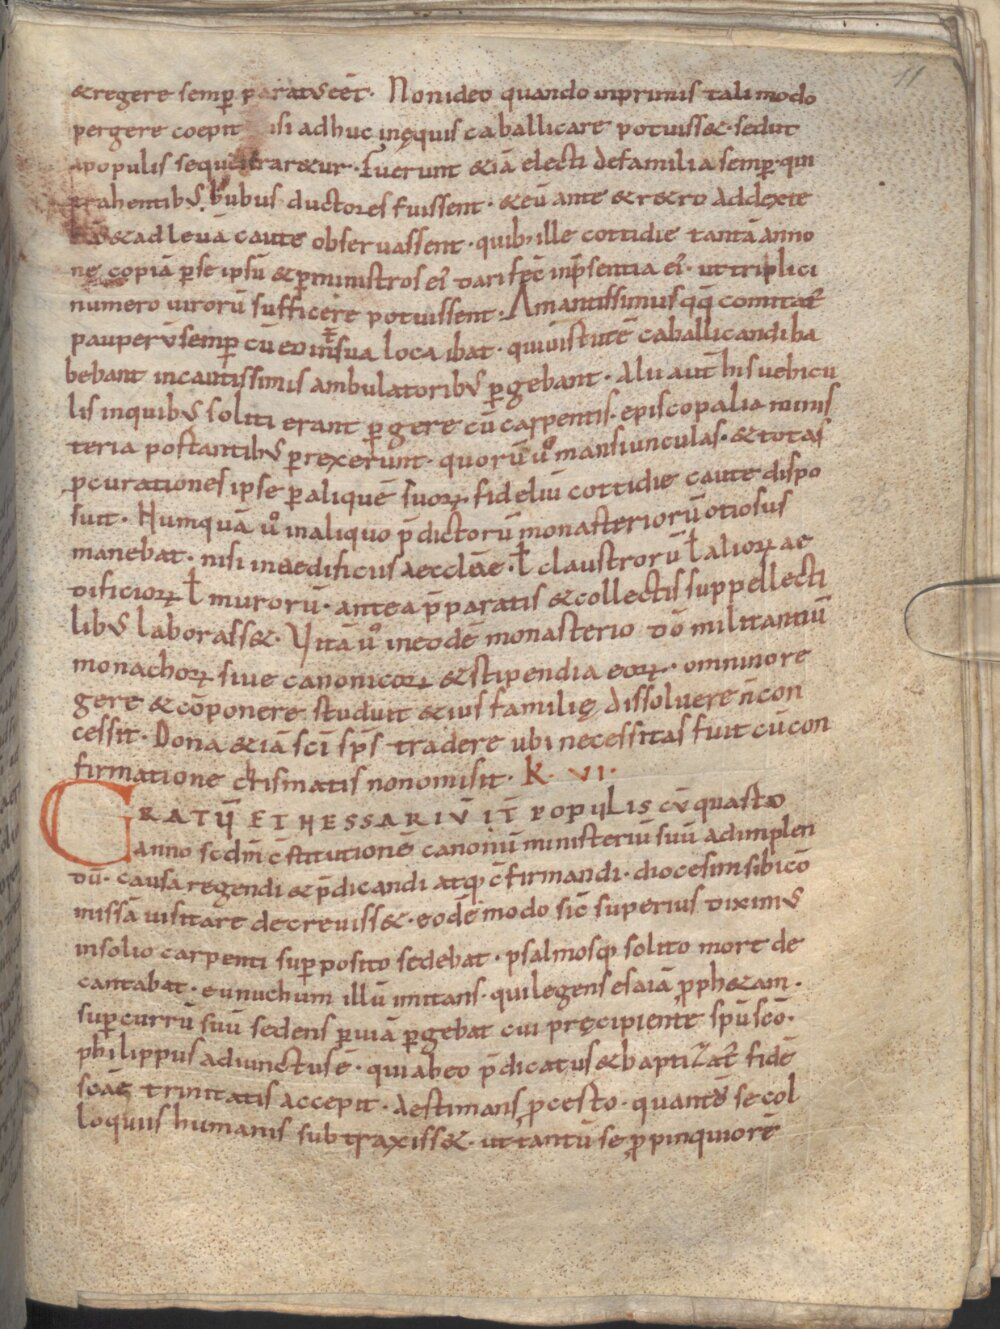 11
&regere semp̄ paratus eēt· Non ideo quando inprimis tali modo
pergere coepit isi adhuc in ęquis caballicare potuiss&· sed ut
apopulis sequ trar&ur· Fuerunt &iā electi defamilia semp̄· qui
trahentibus bubus ductores fuissent· &eū ante &r&ro addexte
&adleuā caute obseruassent· quib; ille cottidie tantā anno
nę copiā p̱se ipsū &p̱ministros ei᾽ dari fēc inp̄sentia ei᾽· uttriplici
numero uirorū sufficere potuissent· Amantissimus qq̄ comitat᷑
pauperū semp̄ cū eo insua loca ibat· quiuistutē caballicandi ha
bebant incautissimis ambulatoribus p̱gebant· Alii aut̄ his uehicu
lis inquibus soliti erant p̱gere cū carpentis· episcopalia minis
teria postantibus p̱rexerunt· quorū uº mansiunculas· &totas
p̱curationes ipse p̱aliquē suoꝝ fideliū cottidie caute dispo
suit· Humquā uº inaliquo p̄dictorū monasteriorū otiosus
manebat· nisi inaedificiis aeccleāe· ł claustrorū ł alioꝝ ae
dificioꝝ ł murorū· antea p̄paratis &collectis suppellecti
libus laborass&· Vitā uº ineodē monasterio dō militantiū
monachoꝝ siue canonicoꝝ &stipendia eoꝝ· omnino re
gere &cōponere studuit &ius familię dissoluere n̄ con
cessit· Dona &iā sc̄i sp̄s tradere ubi necessitas fuit cū con
firmatione crismatis non omisit· K· VI·
GRATŪ ET NESSARIŪ IT̄ POPULIS CŪ quasto
anno scdm̄ c̄stitutionē canonū ministeriū suū adimplen
dū· causa regendi &p̄dicandi atq; c̄firmandi· diocesim sibi cō
missā uisitare decreuiss&· eodē modo sic̄ superius diximus
insolio carpenti sup̱posito sedebat· psalmosq; solito more de
cantabat· eunuchum illū imitans· qui legens esaiā p̱ph&am·
sup̱currū suū sedens p̱uiā p̱gebat cui pręcipiente sp̄u sc̄o·
philippus adiunctus ē· qui abeo p̄dicatus &baptizat᷑ fidē
sc̄ae trinitatis accepit· Aestimans p̱cesto· quanto se col
loquiis humanis subtraxiss&· ut tantū se p̱pinquiorē